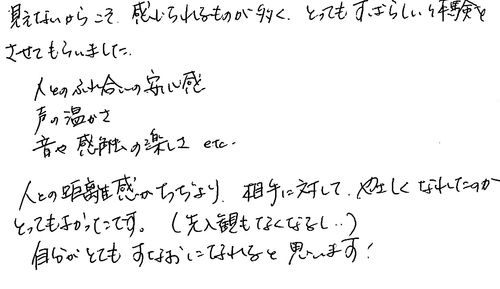 見えないからこそ、感じられるものが多く、とってもすばらしい体験を
させてもらいました。
人とのふれ合いの安心感
声の温かさ
音や感触の楽しさ etc.
人との距離感がちぢまり、相手に対して、やさしくなれたのが
とってもよかったです。(先入観もなくなるし..)
自分がとてもすなおになれると思います!